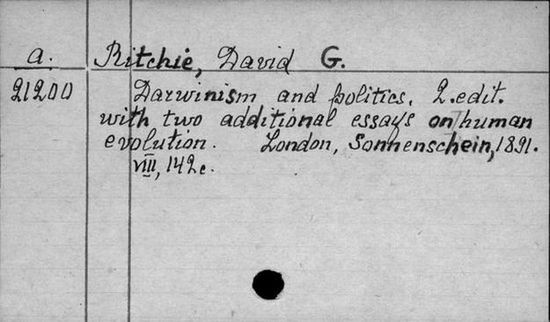 a. Ritchie, David G.
21200 Darwinism and politics. 2. edit.
with two additional essays on human
evolution. London, Sonnenschein, 1891.
VIII, 142 c.